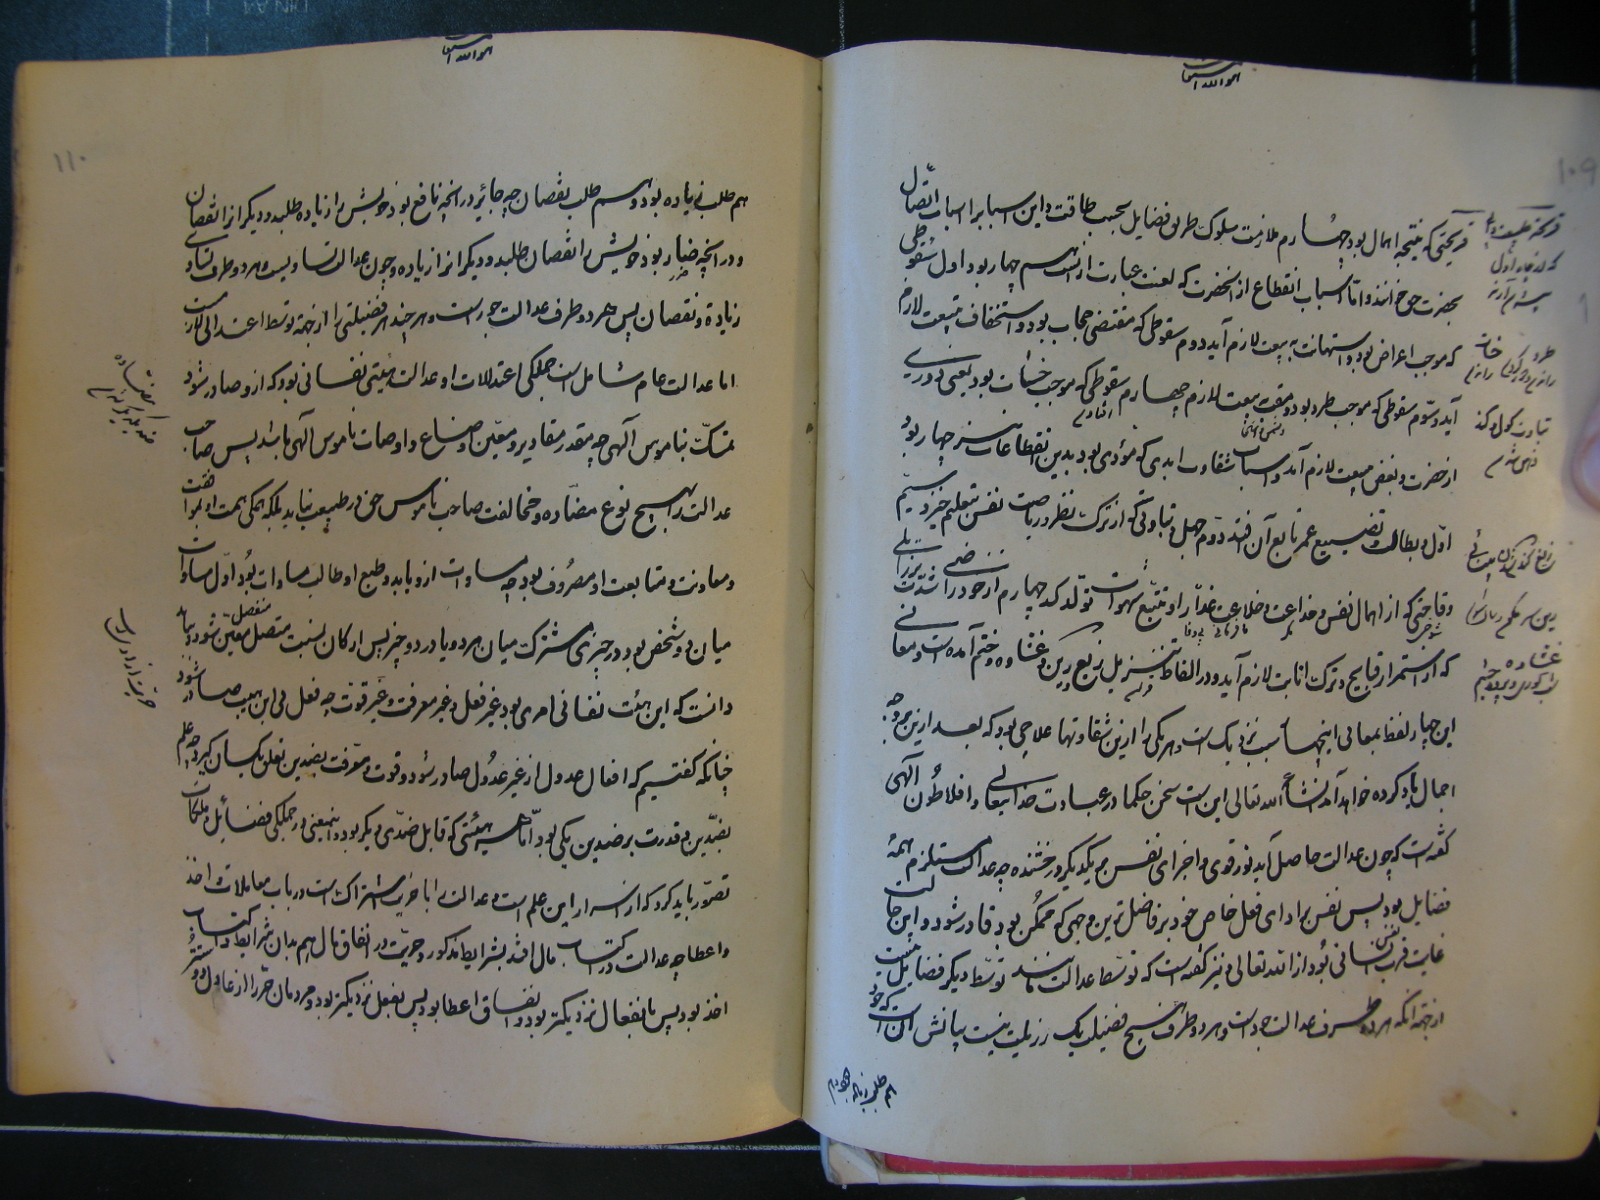 هو الله
۱۰۹
قریحتی که نتیجه اهمال بود چهارم ملازمت سلوک طریق فضایل بحسب طاقت و این اسباب را اسباب اتصال
بحضرت حق خوانند و اما اسباب انقطاع از آنحضرت که لعنت عبارت از آنست هم چهار بود اول سقوطی
که موجب اعراض بود و استهانت به تبعیت لازم آید دوم سقوطی که مقتضی حجاب بود و استخفاف بتبعیت لازم
آید و سوم سقوطی که موجب طرد بود و مقت به تبعیت لازم چهارم سقوطی که موجب خسات بود یعنی دوری
از حضرت و بغض بتبعیت لازم آید و اسباب شقاوت ابدی که مؤدی بود بدین انقطاعات نیز چهار بود
اول بطالت و تضییع عمر تابع آن افتد دوم جهل و غباوتی که از ترک نظر و ریاضت نفس بتعلیم خیزد سیم
وقاحتی که از اهمال نفس و خلاعت عذار او در تتبع شهوات تولد کند چهارم از خود راضی شدن برذایلی
که از استمرار قبایح و ترک انابت لازم آید و در الفاظ تنزیل زیغ و رین و غشاوه و ختم آمده است و معانی
این چهار لفظ بمعانی اینچهار سبب نزدیک است و هر یکی را ازین شقاوتها علاجی بود که بعد ازین بر وجه
اجمال یاد کرده خواهد آمد انشاء الله تعالی این است سخن حکما در عبادت خدایتعالی و افلاطون الهی
گفته است که چون عدالت حاصل آید نور قوی و اجزای نفس بر یکدیگر درخشنده چه عدالت مستلزم همه
فضایل بود پس نفس بر ادای فعل خاص خود بر فاضلترین وجهی که ممکن بود قادر شود و این حالت
غایت قرب نفس انسانی بود از الله تعالی و نیز گفته است که توسط عدالت مانند توسط دیگر فضایل نیست
از جهة آنکه هر دو طرف عدالت جور است و هر دو طرف هیچ فضیلت یک رذیلت نیست بیانش آنست که جور
هم طلب زیاده بود و هم
هو الله
۱۱۰
هم طلب زیاده بود و هم طلب نقصان چه جائز در آنچه نافع بود خویش را زیاده طلبد و دیگران را نقصان
و در آنچه ضار بود خویش را نقصان طلبد و دیگران را زیاده و چون عدالت تساویست و هر دو طرف تساوی
زیادة و نقصان پس هر دو طرف عدالت جور است و هر چند هر فضیلتی را از جهة توسط اعتدالی لازمست
اما عدالت عام و شامل است جملگی اعتدالات را و عدالت هیئتی نفسانی بود که ازو صادر شود
تمسک بناموس الهی چه مقدر مقادیر و معین اوضاع و اوساط ناموس الهی باشد پس صاحب
عدالت را بهیچ نوع مضاده و مخالفت صاحب ناموس حق در طبیعت نیاید بلکه همگی همت او بموافقت
و معاونت و متابعت او مصروف بود چه مساوات ازو یابد و طبع او طالب مساوات بود و اول مساوات
میان دو شخص بود در چیزی مشترک میان هر دو یا در دو چیز پس ارکان نسبت متصل یا منفصل معین شود و بباید
دانست که این هیئت نفسانی امری بود غیر فعل و غیر معرفت و غیر قوت چه فعل بی این هیئت صادر شود
چنانکه گفتیم که افعال عدول از غیر عدول صادر شود و قوت و معرفت بضدین تعلق یکسان گیرد چه علم
بضدین و قدرت بر ضدین یکی بود اما هر هیئتی که قابل ضدی دیگر بود و اینمعنی در جملگی فضایل و ملکات
تصور باید کرد که از اسرار این علم است و عدالت را با حریت اشتراک است در باب معاملات و اخذ
و اعطا چه عدالت در اکتساب مال افتد بشرایط مذکور و حریت در انفاق مال هم بدان شرایط و اکتساب
اخذ بود پس بانفعال نزدیکتر بود و انفاق اعطا بود پس بفعل نزدیکتر بود و مردمان حر را از عادل دوستر